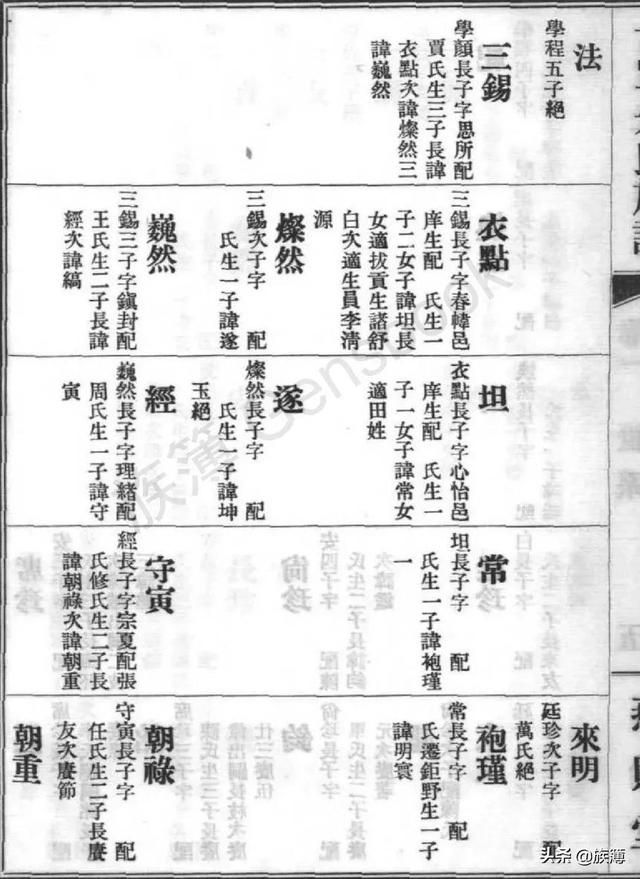 法
學程五子絕
三錫
學顏長子字思所配
賈氏生三子長諱
衣點次諱燦然三
諱巍然
衣點
三錫長子字春幃邑
庠生配 氏生一
子二女子諱坦長
女適拔貢生諾舒
白次適生員李清
源
燦然
三錫次子字 配
氏生一子諱遂
巍然
三錫三子字鎭封配
王氏生二子長諱
經次諱縞
坦
衣點長子字心怡邑
庠生配 氏生一
子一女子諱常女
適田姓
遂
燦然長子字 配
氏生一子諱坤
玉絕
經
巍然長子字理緒配
周氏生一子諱守
寅
常
坦長子字 配
氏生一子諱袍瑾
一
守寅
經長子字宗夏配張
氏修氏生二子長
諱朝祿次諱朝重
來明
廷珍次子字 配
萬氏絕
袍瑾
常長子字 配
氏遷鉅野生一子
諱明寰
朝祿
守寅長子字 配
任氏生二子長賡
友次賡節
朝重
族簿
头条 @族簿